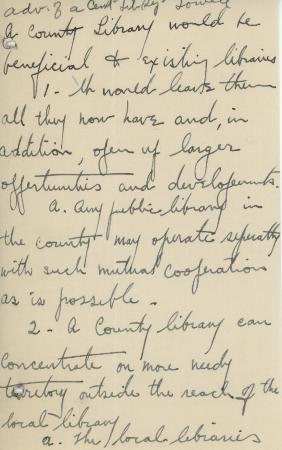 adv. of a Cent. Library
A County Library would be
beneficial to existing libraries
1. It would leave them
all they now have and, in
addition, open up larger
opportunities and developments.
a. Any public library in
the county may operate seperatly
with such mutual cooperation
as is possible.
2 - A County library can
concentrate on more needy
territory outside the reach of the
local library
a. The local libraries